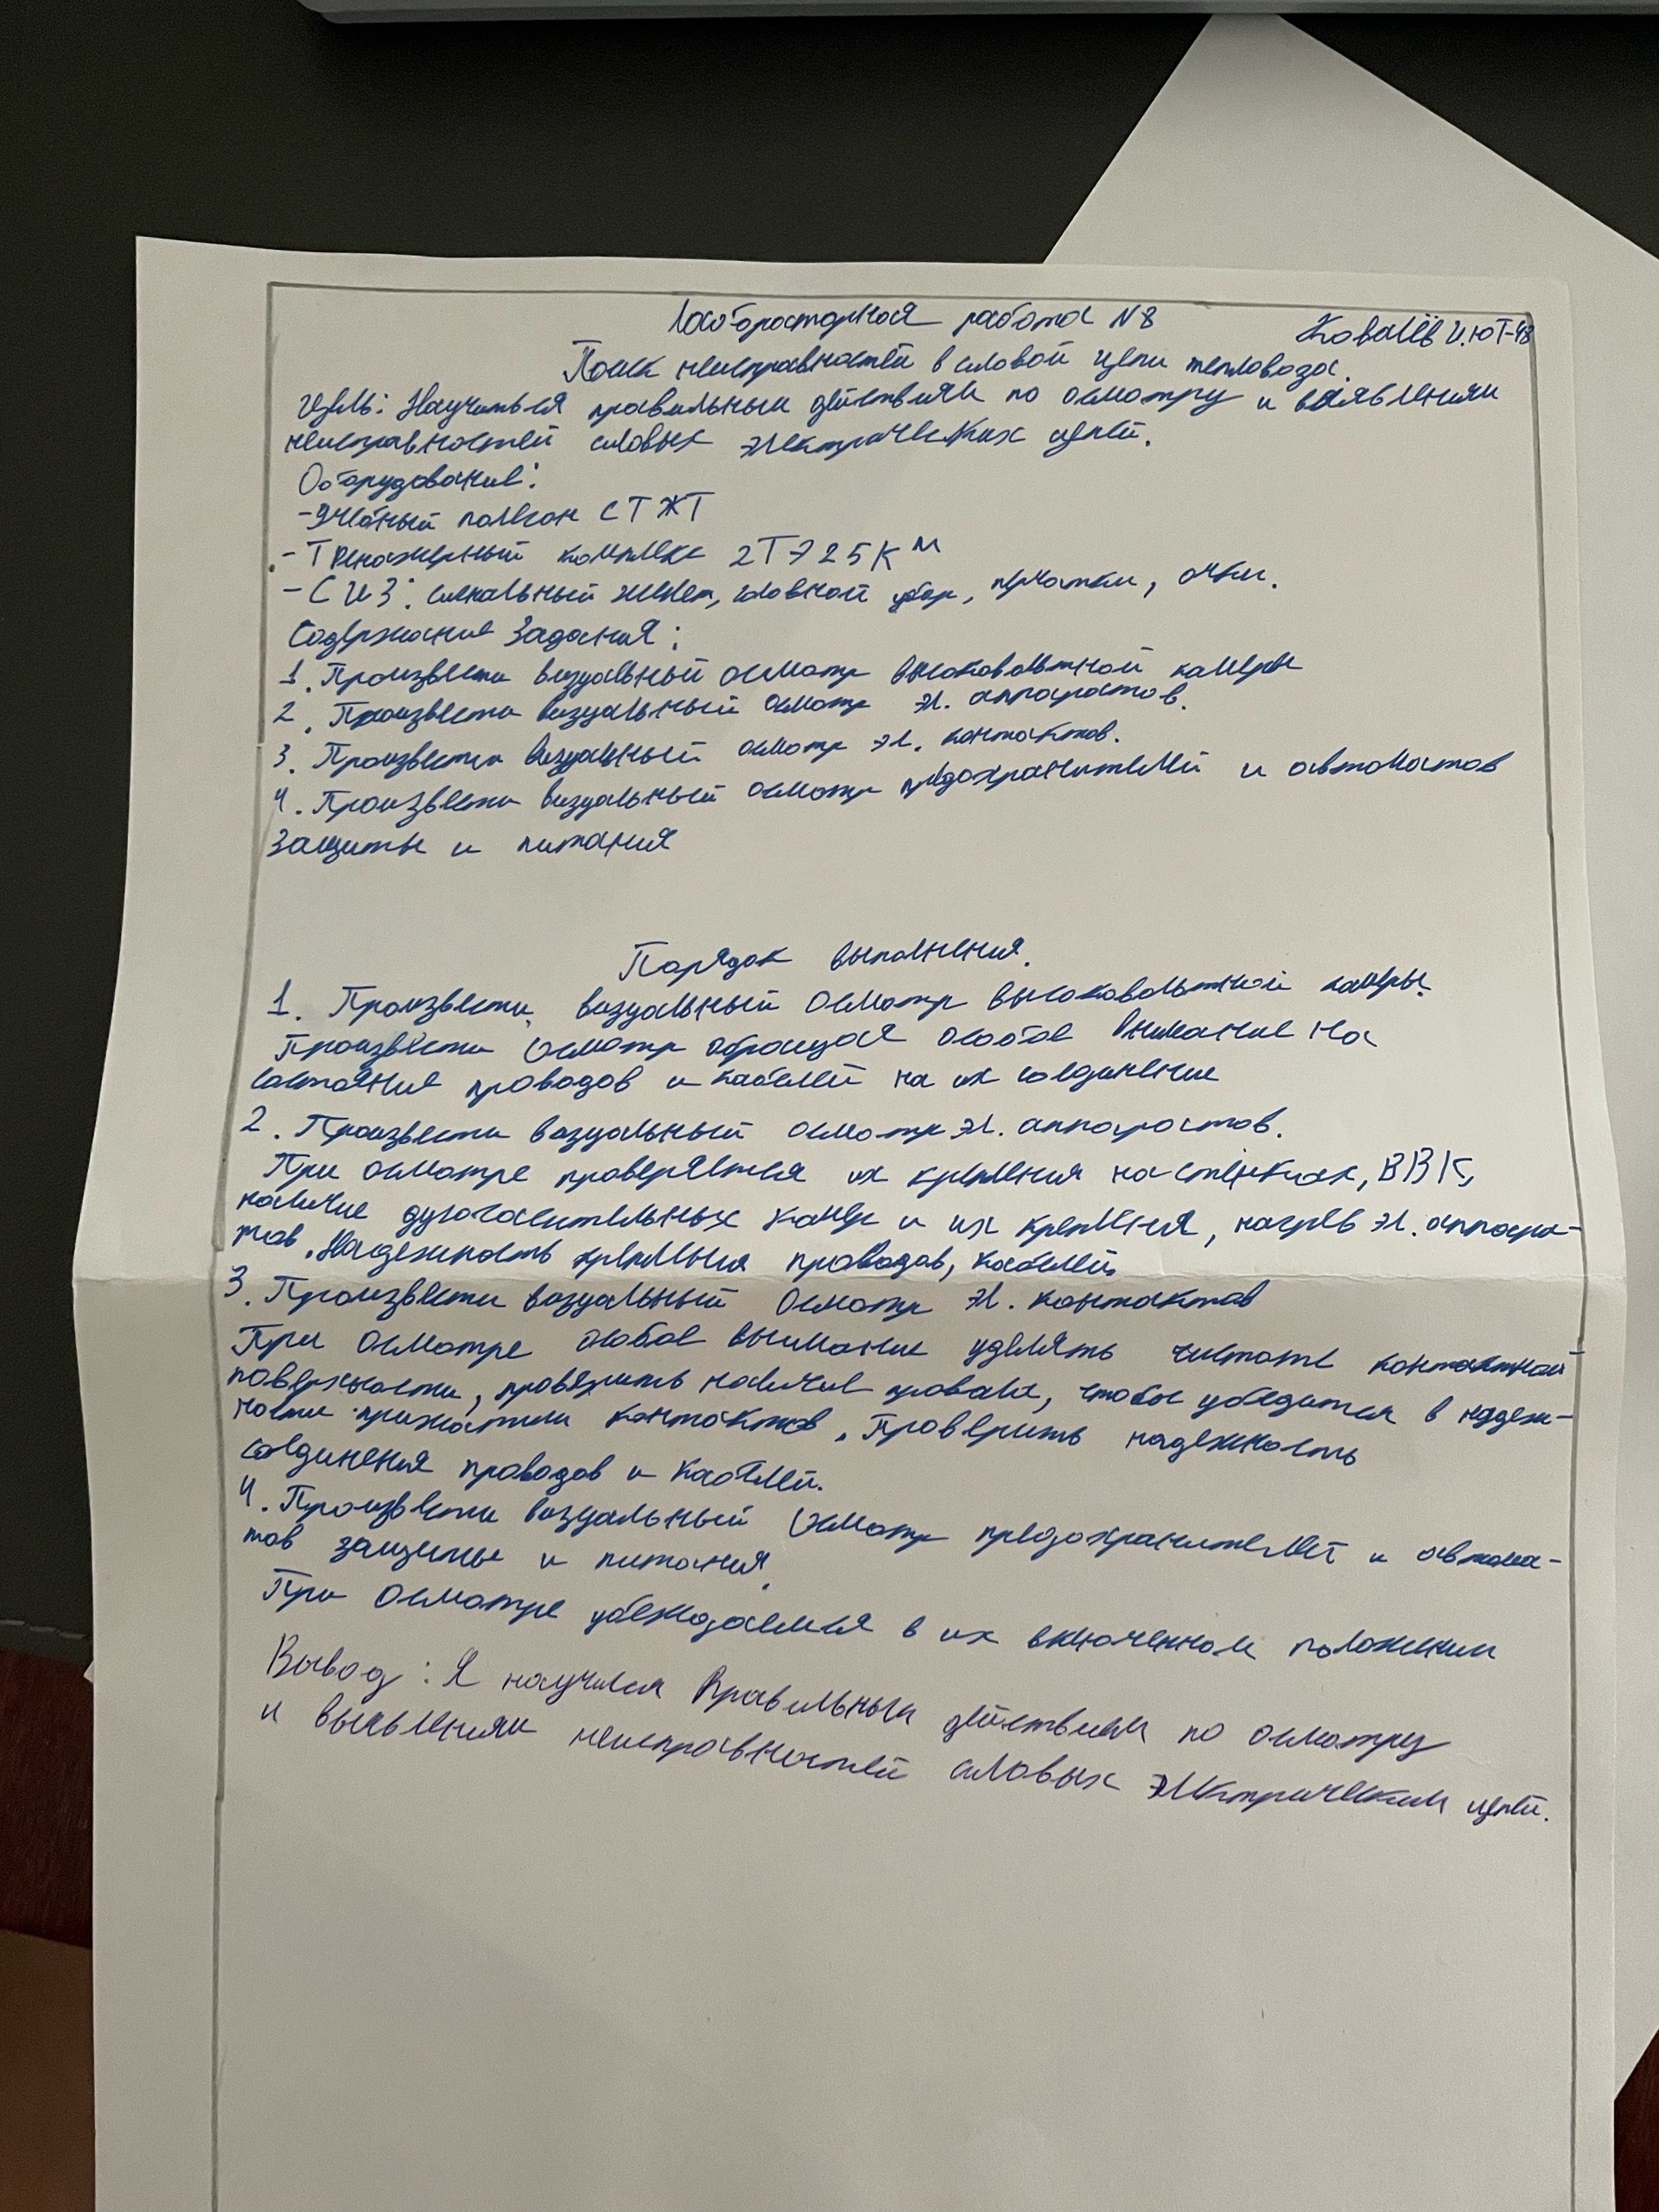 Лабораторная работа №8
Ковалёв И.Ю Т-48
Поиск неисправностей в силовой цепи тепловоза.
Цель: Научиться правильным действиям по осмотру и выявлениям
неисправностей силовых электрических цепей.
Оборудование:
- Учебный полигон СТЖТ
- Тренажерный комплекс 2ТЭ25КМ
- СИЗ: сигнальный жилет, головной убор, перчатки, очки.
Содержание Задания:
1. Произвести визуальный осмотр высоковольтной камеры
2. Произвести визуальный осмотр эл. аппаратов.
3. Произвести визуальный осмотр эл. контактов.
4. Произвести визуальный осмотр предохранителей и автоматов
Защиты и питания
Порядок выполнения.
1. Произвести визуальный осмотр высоковольтной камеры.
Произвести осмотр обращая особое внимание на
состояние проводов и кабелей на их соединение
2. Произвести визуальный осмотр эл. аппаратов.
При осмотре проверяется их крепления на стенках, ВВК,
наличие дугогасительных камер и их крепления, нагрев эл. аппара-
тов. Надежность крепления проводов, кабелей.
3. Произвести визуальный осмотр эл. контактов
При осмотре особое внимание уделять чистоте контактной
поверхности, проверить наличие провала, чтобы убедится в надеж-
ности прижатии контактов. Проверить надежность
соединения проводов и кабелей.
4. Произвести визуальный осмотр предохранителей и автома-
тов защиты и питания.
При осмотре убеждаемся в их включенном положении
Вывод: Я научился Правильным действиям по осмотру
и выявлениям неисправностей силовых электрическим цепей.